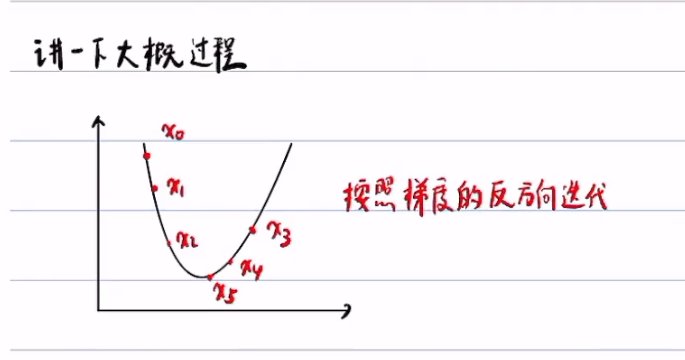 讲一下大概过程
x₀
x₁
x₂
x₃
x₄
x₅
按照梯度的反方向迭代